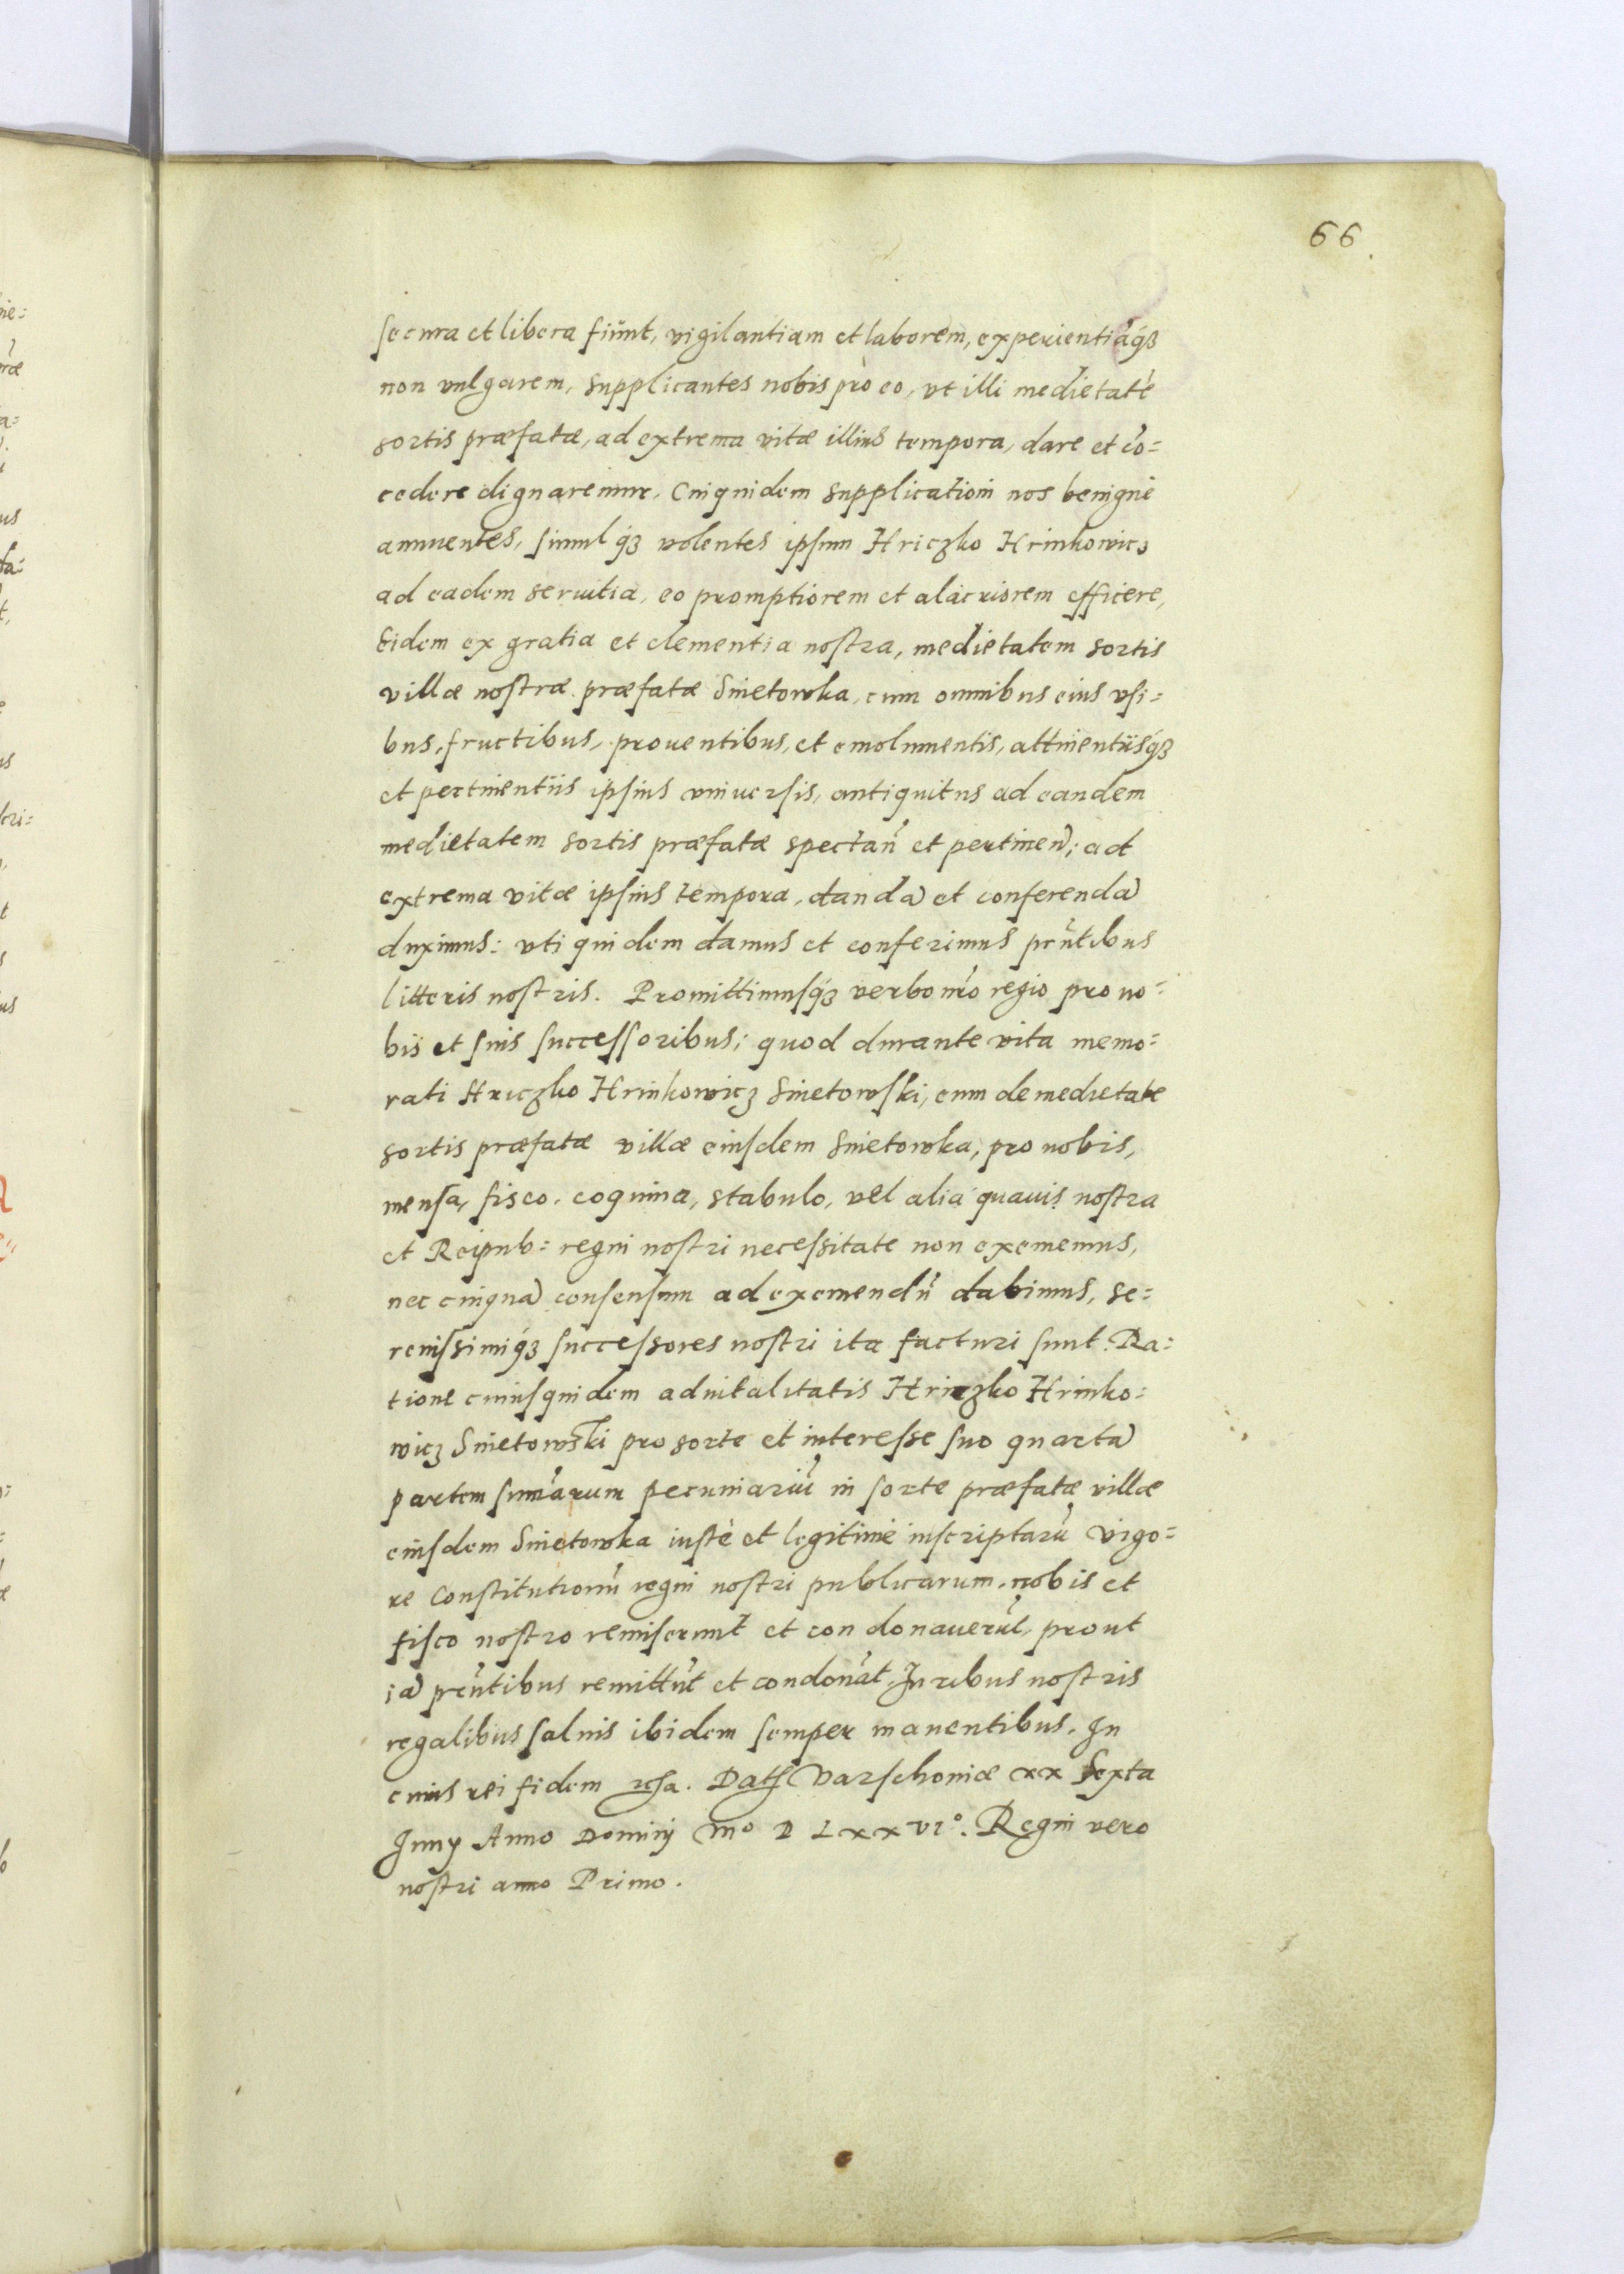 66
secura et libera fiunt, vigilantiam et laborem, experientiāq́ꝫ
non vulgarem, supplicantes nobis pro eo, vt illi medietatē
sortis præfatæ, ad extrema vitæ illius tempora, dare et cō=
cedere dignaremur. Cuiquidem supplicationi nos benignè
annuentes, simulq́ꝫ volentes ipsum Hriczko Hrinkowicz
ad eadem seruitia, eo promptiorem et alacriorem efficere,
Eidem ex gratia et clementia nostra, medietatem sortis
villæ nostræ præfatæ Smetowka, cum omnibus eius vsi=
bus, fructibus, prouentibus, et emolumentis, attinentiisq́ꝫ
et pertinentiis ipsius vniuersis, antiquitus ad eandem
medietatem sortis præfatæ spectan̄ et pertinen̄; ad
extrema vitæ ipsius tempora, dandā et conferendā
duximus: vti quidem damus et conferimus pn̄tibus
litteris nostris. Promittimusq́ꝫ verbo nr̄o regio pro no=
bis et suis successoribus; quod durante vita memo=
rati Hriczko Hrinkowicz Smetowski, eum de medietate
sortis præfatæ villæ eiusdem Smetowka, pro nobis,
mensa, fisco, coquina, stabulo, vel alia quauis nostra
et Reipub: regni nostri necessitate non eximemus,
nec cuiquā consensum ad eximendū dabimus, se=
renissimiq́ꝫ successores nostri ita facturi sunt. Ra=
tione cuiusquidem aduitalitatis Hriczko Hrinko=
wicz Smetowski pro sorte et interesse suo quartā
partem sum̄arum pecuniariū in sorte præfatæ villæ
eiusdem Smetowka iustè et legitimè inscriptarū vigo=
re Constitutionū regni nostri publicarum, nobis et
fisco nostro remiserunt et condonauerūt, prout
iā pn̄tibus remittūt et condonāt. Iuribus nostris
regalibus saluis ibidem semper manentibus. In
cuius rei fidem Dat Varschouiæ xx Sexta
Iunij Anno Dominj Mº D LXXVIº. Regni vero
nostri anno Primo.